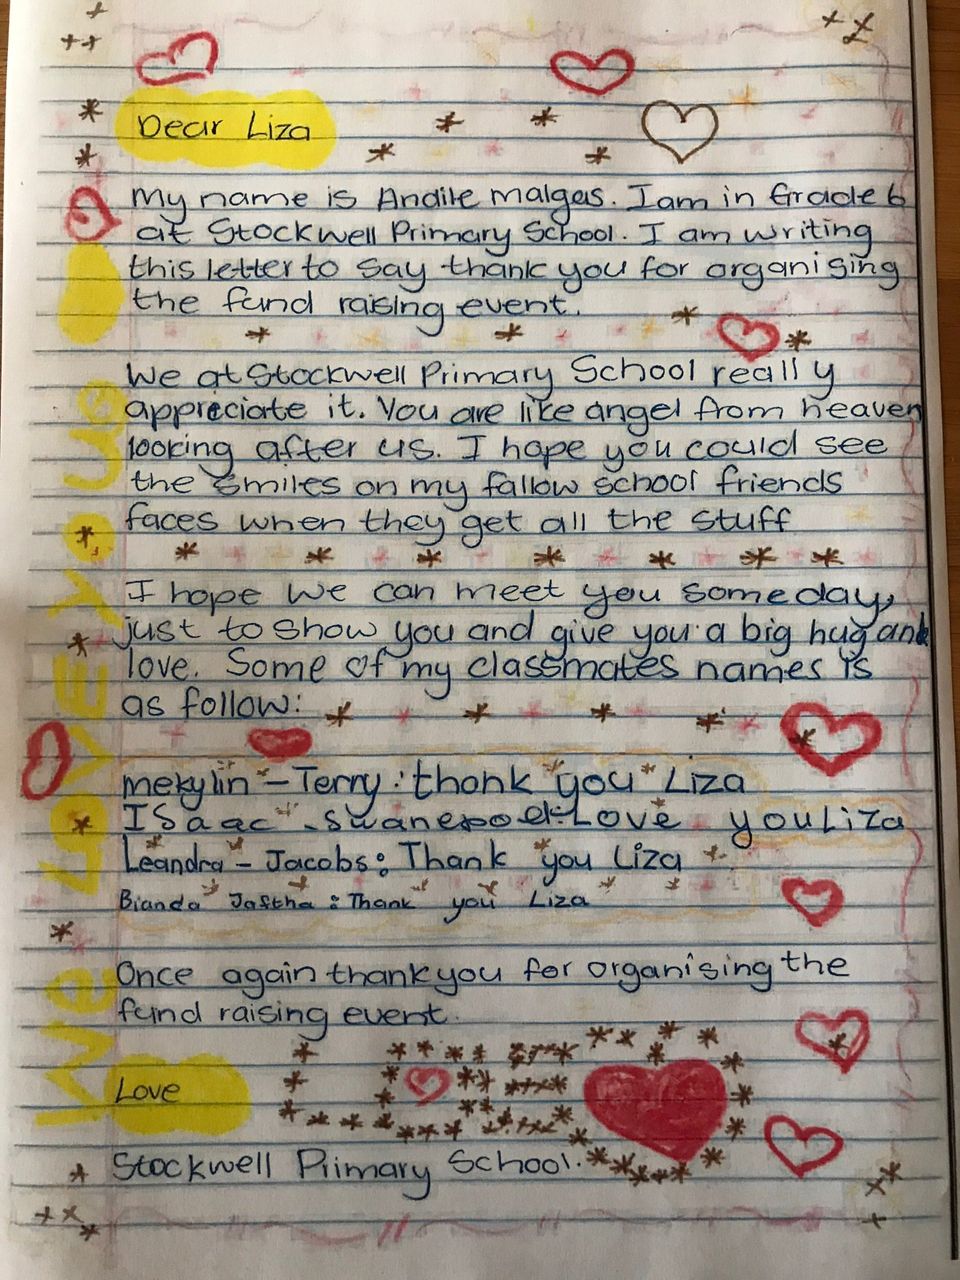 Dear Liza
My name is Andile Malgas. I am in Grade 6
at Stockwell Primary School. I am writing
this letter to say thank you for organising
the fund raising event.
We at Stockwell Primary School really
appreciate it. You are like angel from heaven
looking after us. I hope you could see
the smiles on my fallow school friends
faces when they get all the stuff
I hope we can meet you someday,
just to show you and give you a big hug and
love. Some of my classmates names is
as follow:
mekylin - Terry: thank you Liza
ISaac - Swanepoel: Love you Liza
Leandra - Jacobs: Thank you Liza
Bianda Jaftha: Thank you Liza
Once again thank you for organising the
fund raising event.
Love
Stockwell Primary School.
We LOVE YOU